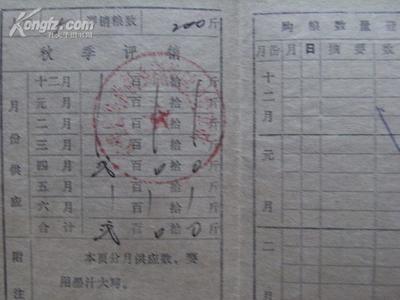 Kongfz.com
孔夫子旧书网
销粮数 200 斤
秋季评销
月份供应
十二月 百 拾 斤
元月 百 拾 斤
二月 百 拾 斤
三月 百 拾 斤
四月 贰 百 0 拾 0 斤
五月 百 拾 斤
六月 百 拾 斤
合计 贰 百 0 拾 0 斤
附注
本页分月供应数、要
用墨汁大写。
购粮数量登
月份 月 日 摘要 数
十二月
元月
二